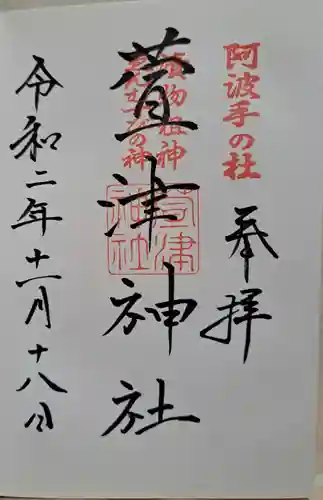 阿波手の杜
奉拝
漬物祖神
萱津神社
萱津神社
令和二年十一月十八日